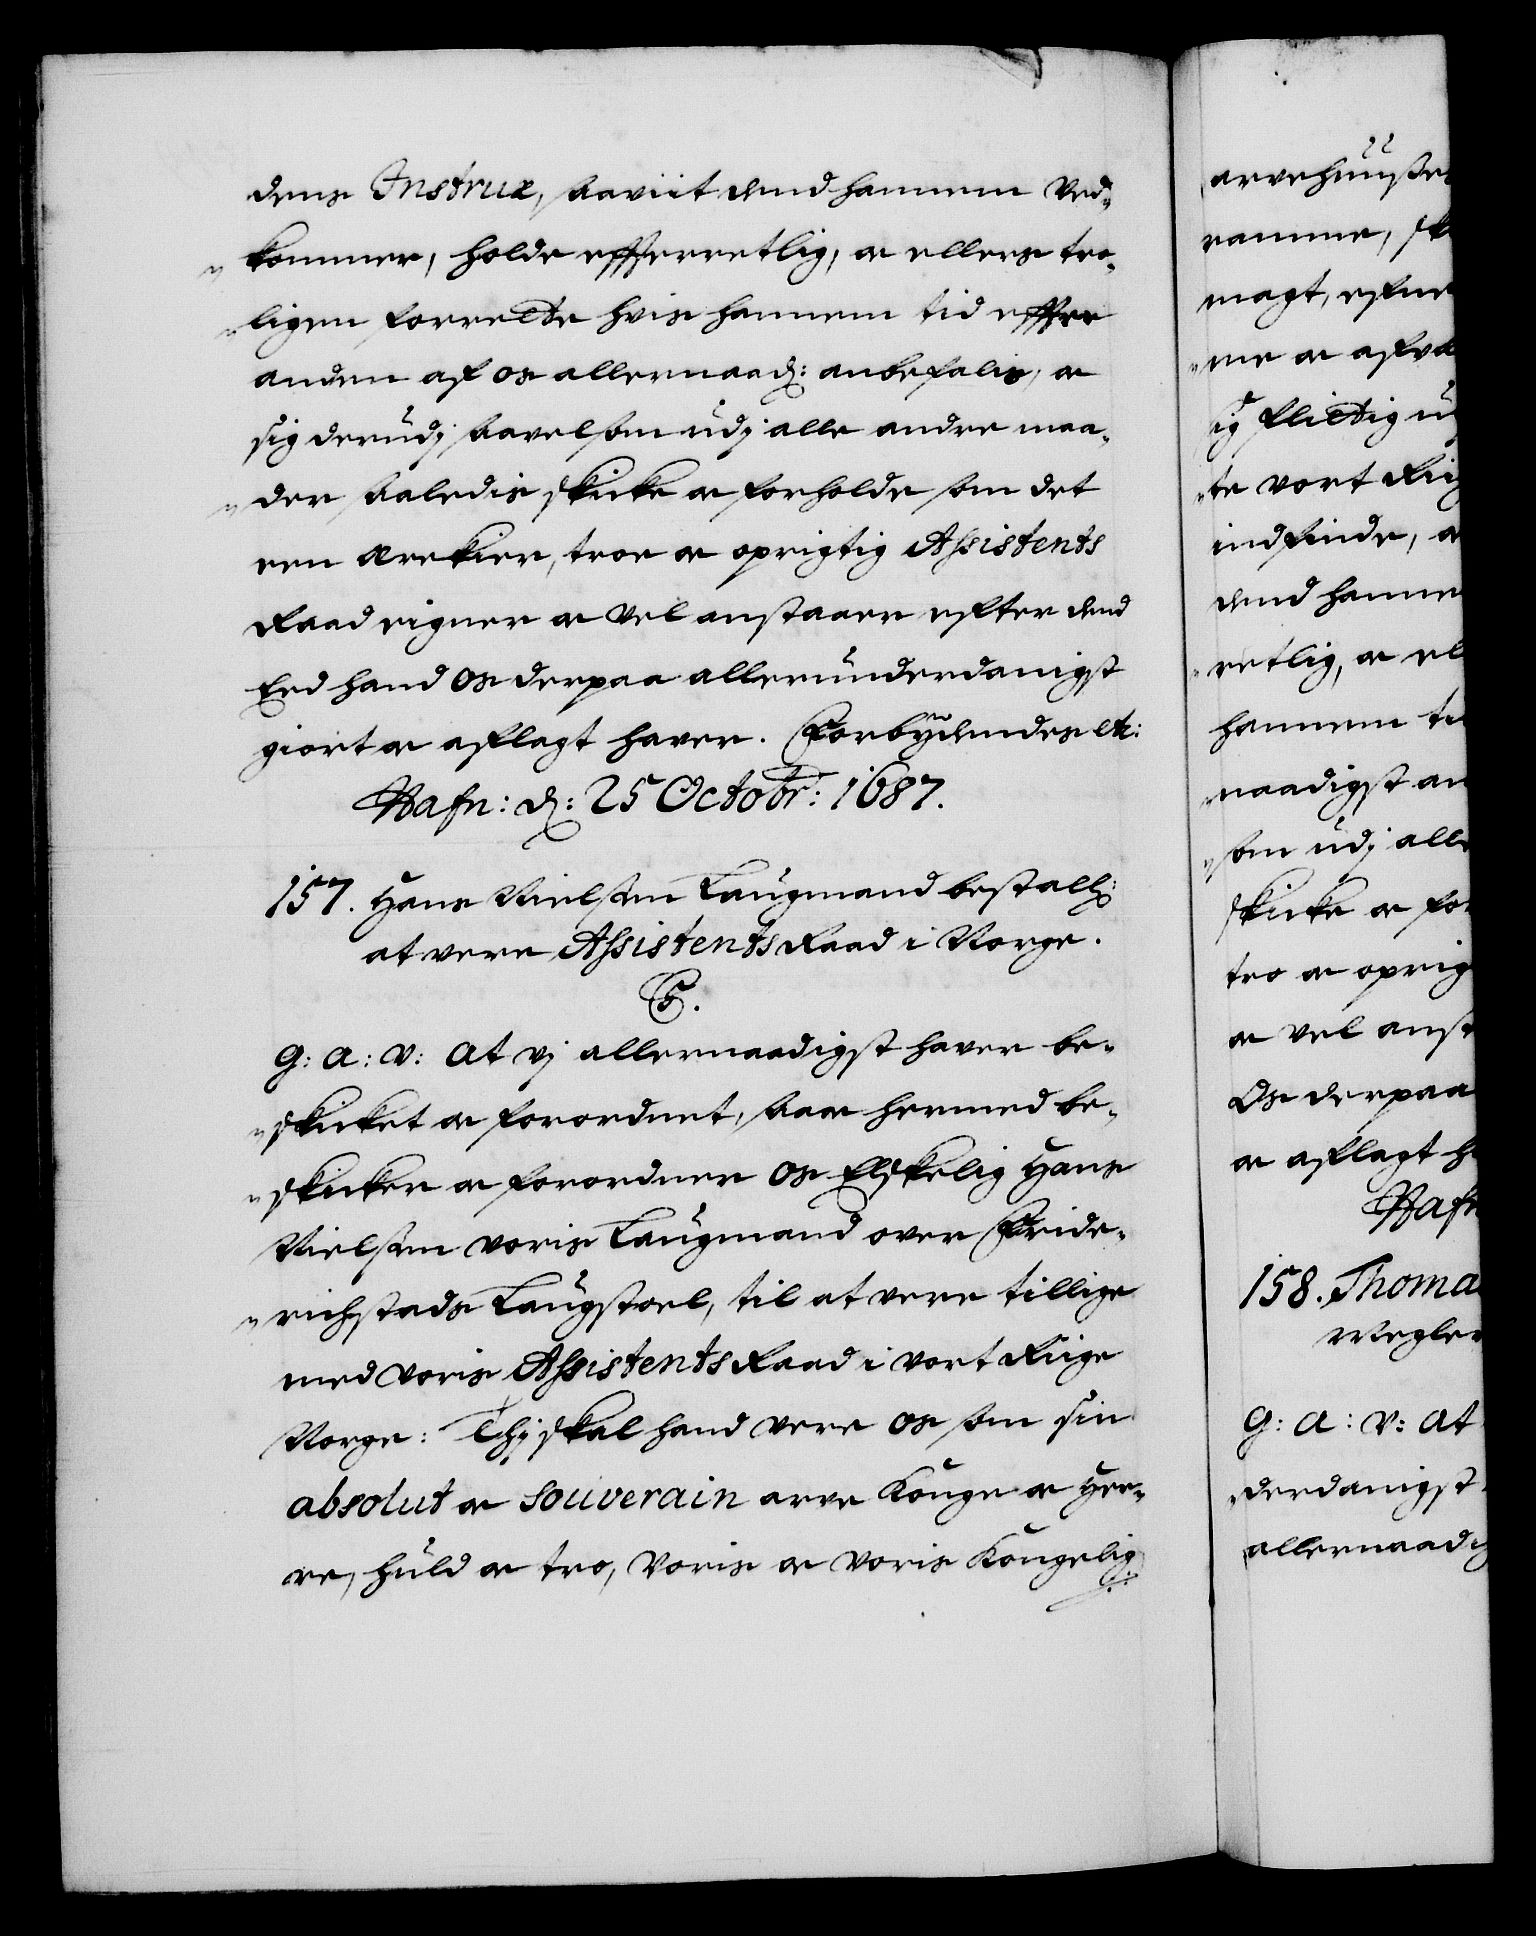 dens Instrux, saaviit dend hannem ved-
kommer, holde effterretlig, oc ellers tro-
ligen forrette hvis hannem tid effter
anden af os allernaad: anbefalis, oc
sig derudj saavelsom udj alle andre maa-
der saaledis skicke oc forholde som det
een ærekier, troe oc oprigtig Assistents
Raad eigner oc vel anstaaer efter dend
Eed hand os derpaa allerunderdanigst
giort oc aflagt haver. Forbydendes etc:
Hafn: d: 25 Octobr: 1687.
157. Hans Nielsen Laugmand bestall:
at vere Assistents Raad i Norge.
C5.
G: A: V: At vj allernaadigst haver be-
skicket oc forordnet, saa oc hermed be-
skicker oc forordner os Elskelig Hans
Nielsen voris Laugmand over Fride-
richstads Laugstoel, til at vere tillige
med voris Assistents Raad i vort Riige
Norge: Thj skal hand vere os som sin
absolut oc souverain arve Konge oc Her-
re, huld oc tro, voris oc voris Kongelig
arvehuuses
ramme, sk
magt, efne
me oc afvæ
sig flittig u
te vort Riig
indfinde, oc
dend hanne
retlig, oc el
hannem ti
naadigst an
som udj alle
skicke oc for
tro oc oprig
oc vel anst
Os derpaa
oc aflagt h
Hafn
158. Thoma
Megler
G: A: V: At
derdanigst
allernaadig